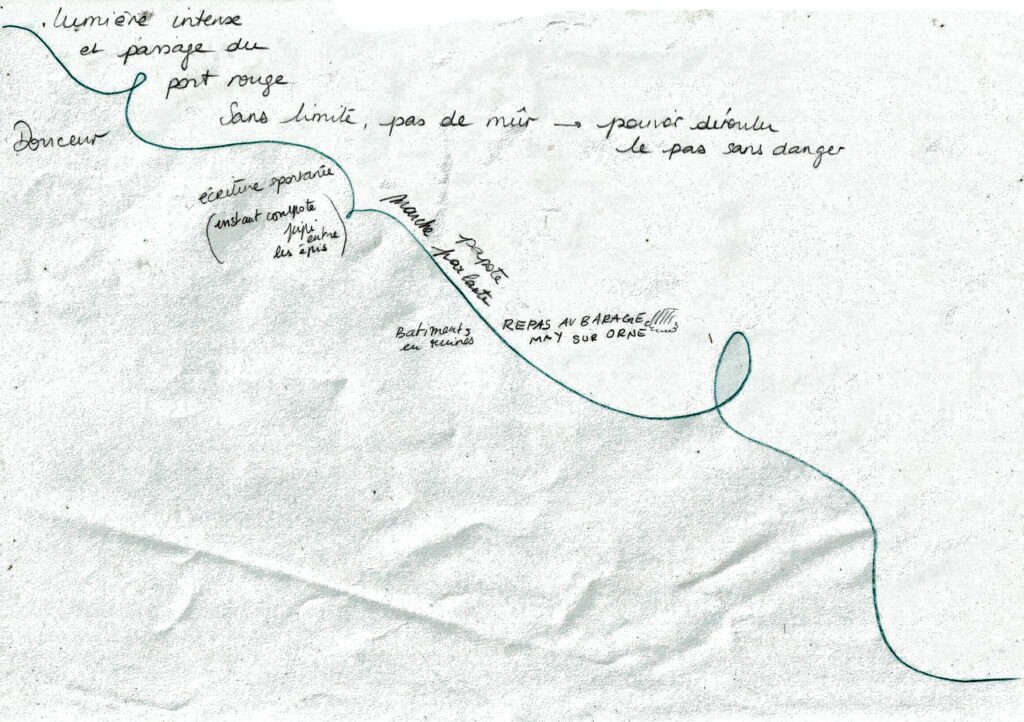 . lumière intense
et passage du
pont rouge
Sans limite, pas de mûr → pouvoir dérouler
le pas sans danger
Douceur
écriture spontanée
(instant compote
pipi entre
les épis)
marche papote
parlante
Batiments
en ruines
REPAS AU BARAGE
MAY SUR ORNE